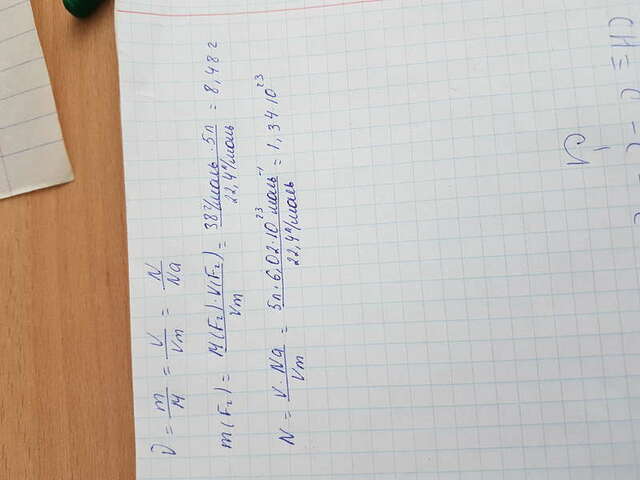 ν = m/M = V/Vm = N/Na
m(F₂) = M(F₂)·V(F₂)/Vm = 38 г/моль · 5л/22,4 л/моль = 8,48 г
N = V · Na/Vm = 5л · 6,02·10²³ моль⁻¹/22,4 л/моль = 1,34·10²³